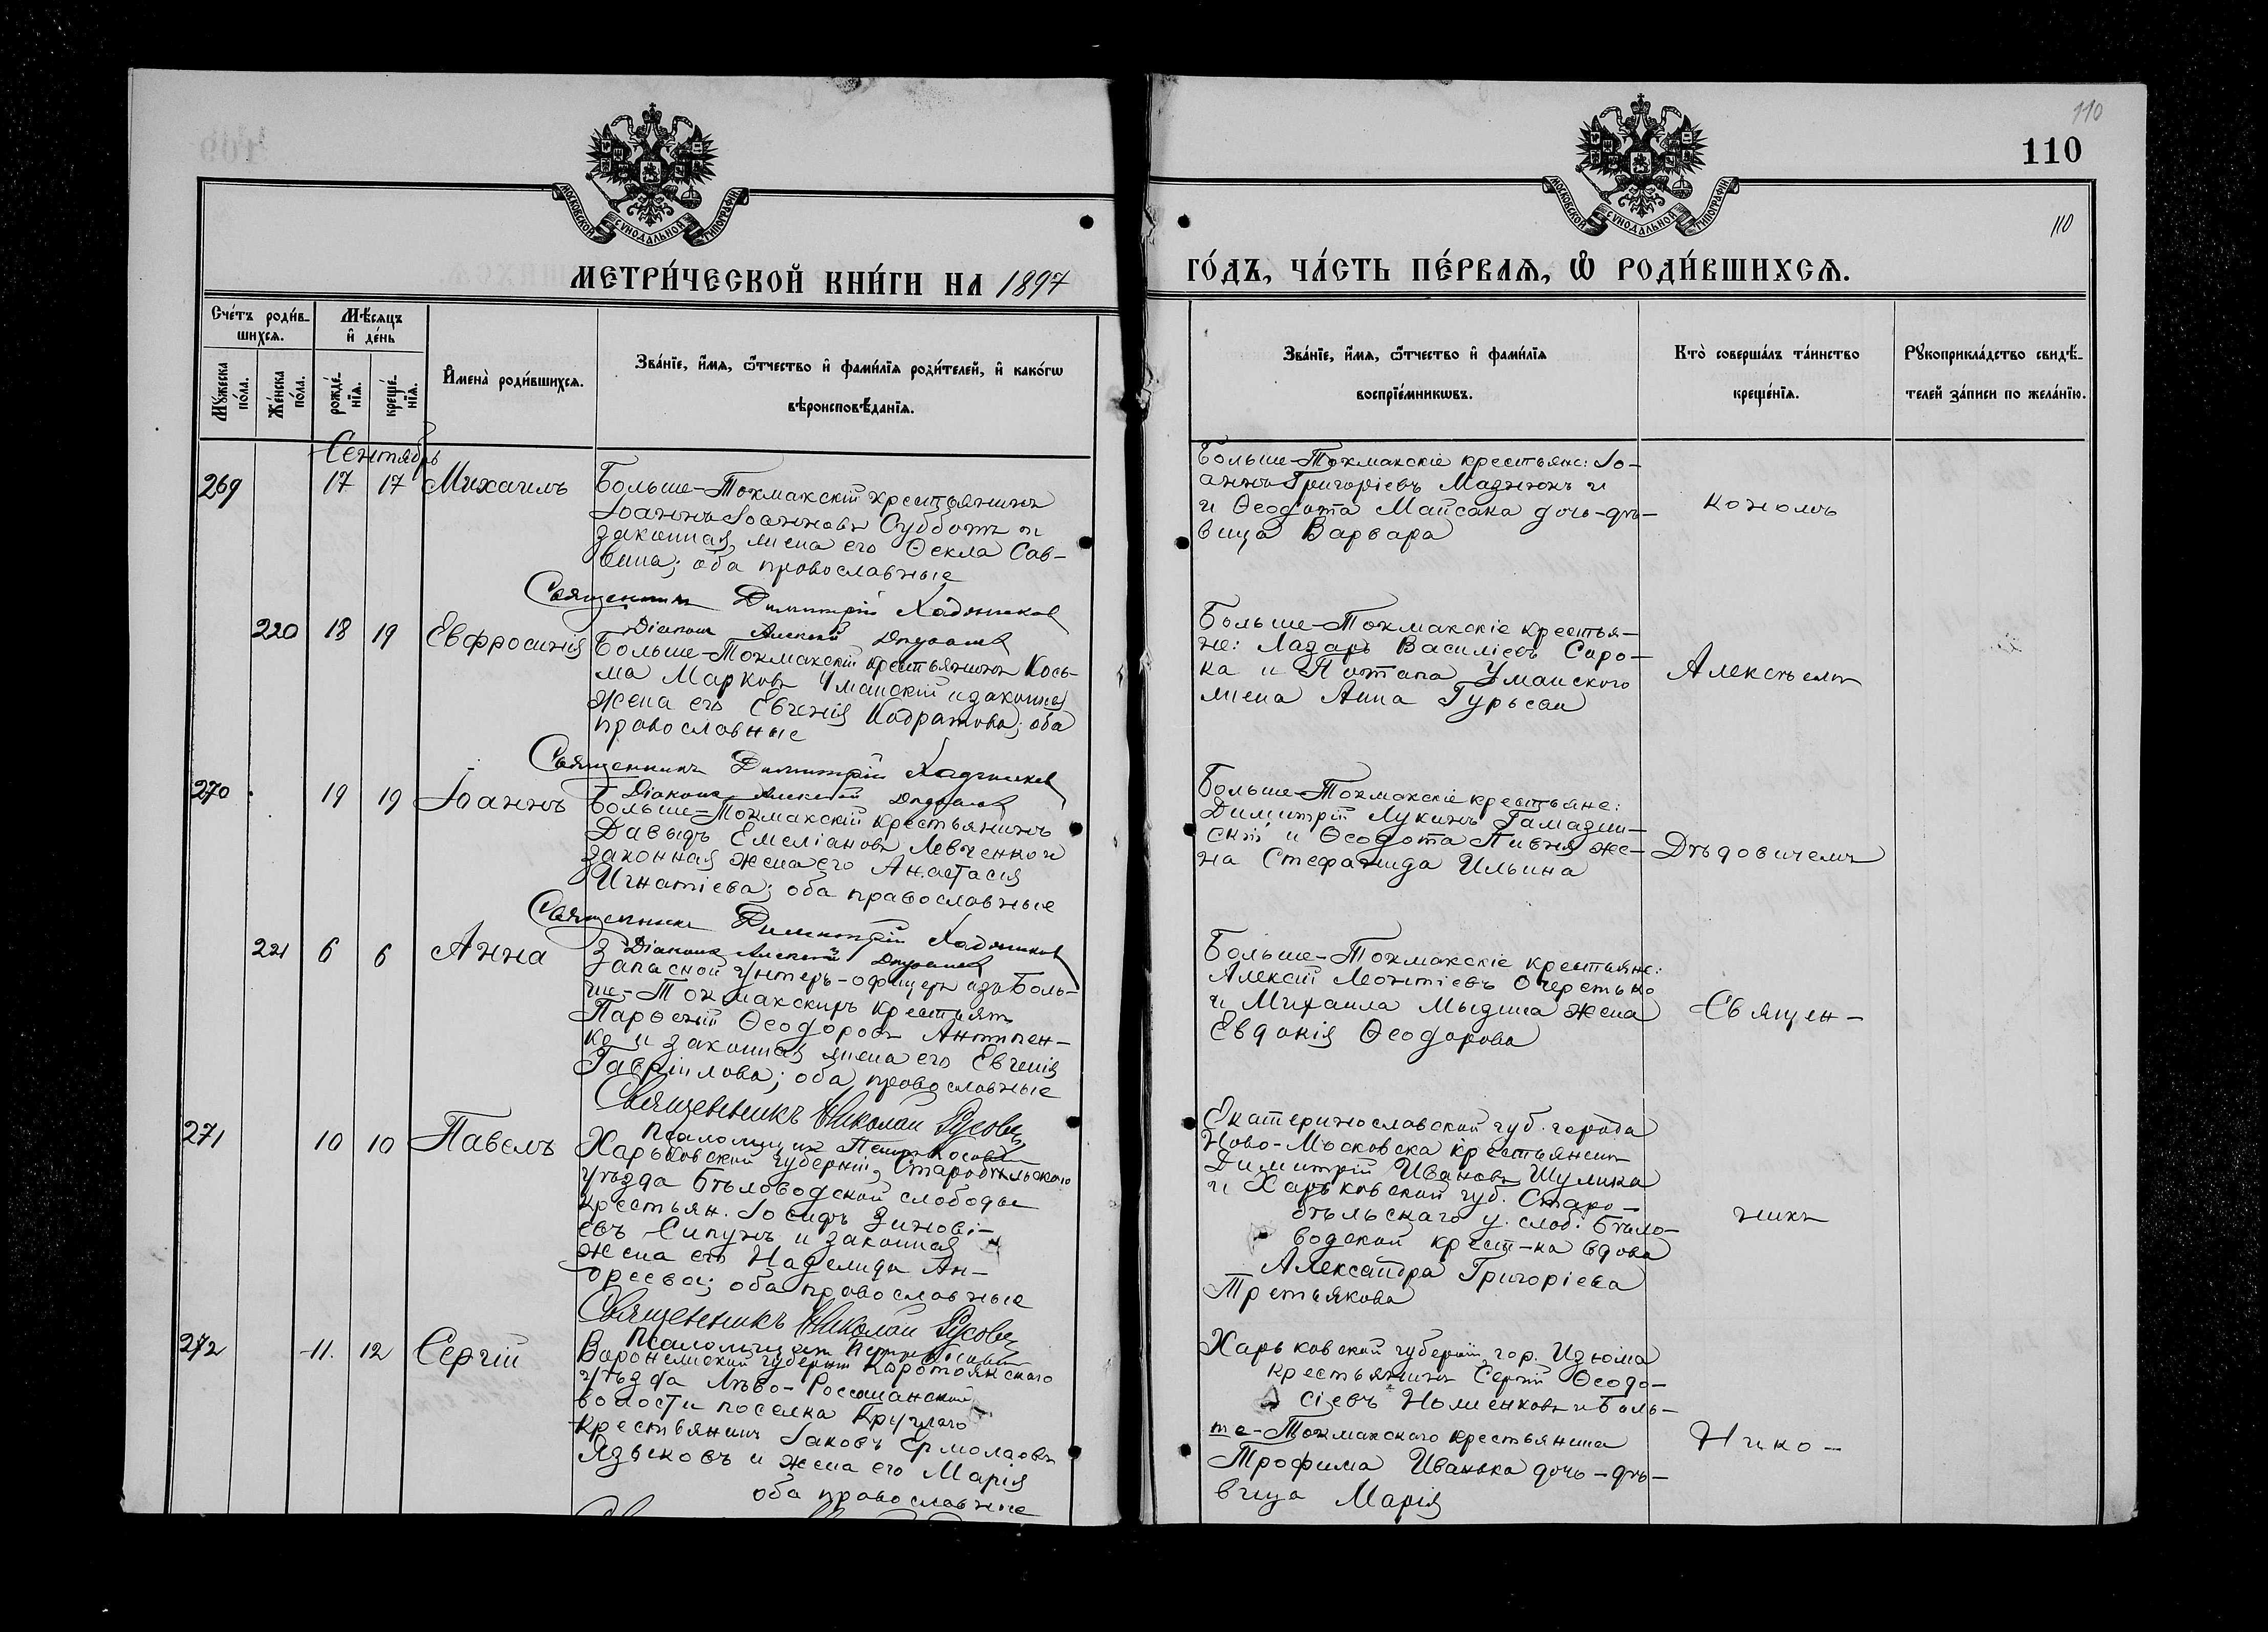 110
110
МОСКОВСКОЙ СѴНОДАЛЬНОЙ ТИПОГРАФІИ
МОСКОВСКОЙ СѴНОДАЛЬНОЙ ТИПОГРАФІИ
110
МЕТРИ́ЧЕСКОЙ КНИ́ГИ НА 1897
ГО́ДЪ, ЧА́СТЬ ПЕ́РВАѦ, Ѽ РОДИ́ВШИХСѦ.
Сче́тъ роди́в-
шихсѧ.
Мѣ́сѧцъ
и҆ де́нь
Мꙋ́жеска
по́ла.
Же́нска
по́ла.
рожде́-
нїѧ.
креще́-
нїѧ.
И҆мена̀ роди́вшихсѧ.
Зва́нїе, и҆́мѧ, ѻ҆́тчество и҆ фами́лїѧ роди́телей, и҆ како́гѡ
вѣроисповѣ́данїѧ.
Зва́нїе, и҆́мѧ, ѻ҆́тчество и҆ фами́лїѧ
воспрїе́мникѡвъ.
Кто̀ соверша́лъ та́инство
креще́нїѧ.
Рꙋкоприкла́дство свидѣ́-
телей за́писи по жела́нїю.
Сентябрь
269 17 17 Михаилъ
Больше-Токмакскій крестьянинъ
Іоаннъ Іоанновъ Субботъ и
законная жена его Ѳекла Сав-
вина; оба православные
Священникъ Димитрій Хаджиновъ
Діаконъ Алексій
Больше-Токмакскіе крестьяне: Іо-
аннъ Григоріевъ Мазнюкъ и
и Ѳеодота Майсака дочь-дѣ-
вица Варвара
кономъ
220 18 19 Евфросинія
Больше-Токмакскій крестьянинъ Кось-
ма Марковъ Уманскій и законная
жена его Евгенія Кодратова; оба
православные
Священникъ Димитрій Хаджиновъ
Діаконъ Алексій
Больше-Токмакскіе крестья-
не: Лазарь Василіевъ Соро-
ка и Потапа Уманского
жена Анна Гурьева
Алексѣемъ
270 19 19 Іоаннъ
Больше-Токмакскій крестьянинъ
Давыдъ Емеліановъ Левченко и
законная жена его Анастасія
Игнатіева; оба православные
Священникъ Димитрій Хаджиновъ
Діаконъ Алексій
Больше-Токмакскіе крестьяне:
Димитрій Лукинъ Гамазин-
скій и Ѳеодота Пивня же-
на Стефанида Ильина
Дѣдовичемъ
221 6 6 Анна
Запасной унтеръ-офицеръ изъ Боль-
ше-Токмакскихъ крестьянъ
Парѳеній Ѳеодоровъ Антипен-
ко и законная жена его Евгенія
Гавріилова; оба православные
Священникъ Николай Русовъ
Псаломщикъ Петръ Косовъ
Больше-Токмакскіе крестьяне:
Алексій Леонтіевъ Очеретько
и Михаила Мыдина жена
Евдокія Ѳеодорова
Священ-
271 10 10 Павелъ
Харьковской губерніи, Старобѣльского
уѣзда Бѣловодской слободы
крестьян. Іосифъ Зиновi-
евъ Сипунъ и законная
жена его Надежда Ан-
дреева; оба православные
Священникъ Николай Русовъ
Псаломщикъ Петръ
Екатеринославской губ. города
Ново-Московска крестьянинъ
Димитрій Ивановъ Шулика
и Харьковской губ. Старо-
бѣльскаго у. слоб. Бѣло-
водской крест-ка вдова
Александра Григоріева
Третьякова
никъ
272 11. 12 Сергій
Воронежской губерніи Коротоякского
уѣзда Лѣво-Россошанской
волости поселка Круглого
крестьянинъ Іаковъ Ермолаевъ
Языковъ и жена его Марія
оба православные
Харьковской губерніи, гор. Изюма
крестьянинъ Сергій Ѳеодо-
сіевъ Номенковъ и Боль-
ше-Токмакского крестьянина
Трофима Иванька дочь-дѣ-
вица Марія
Нико-